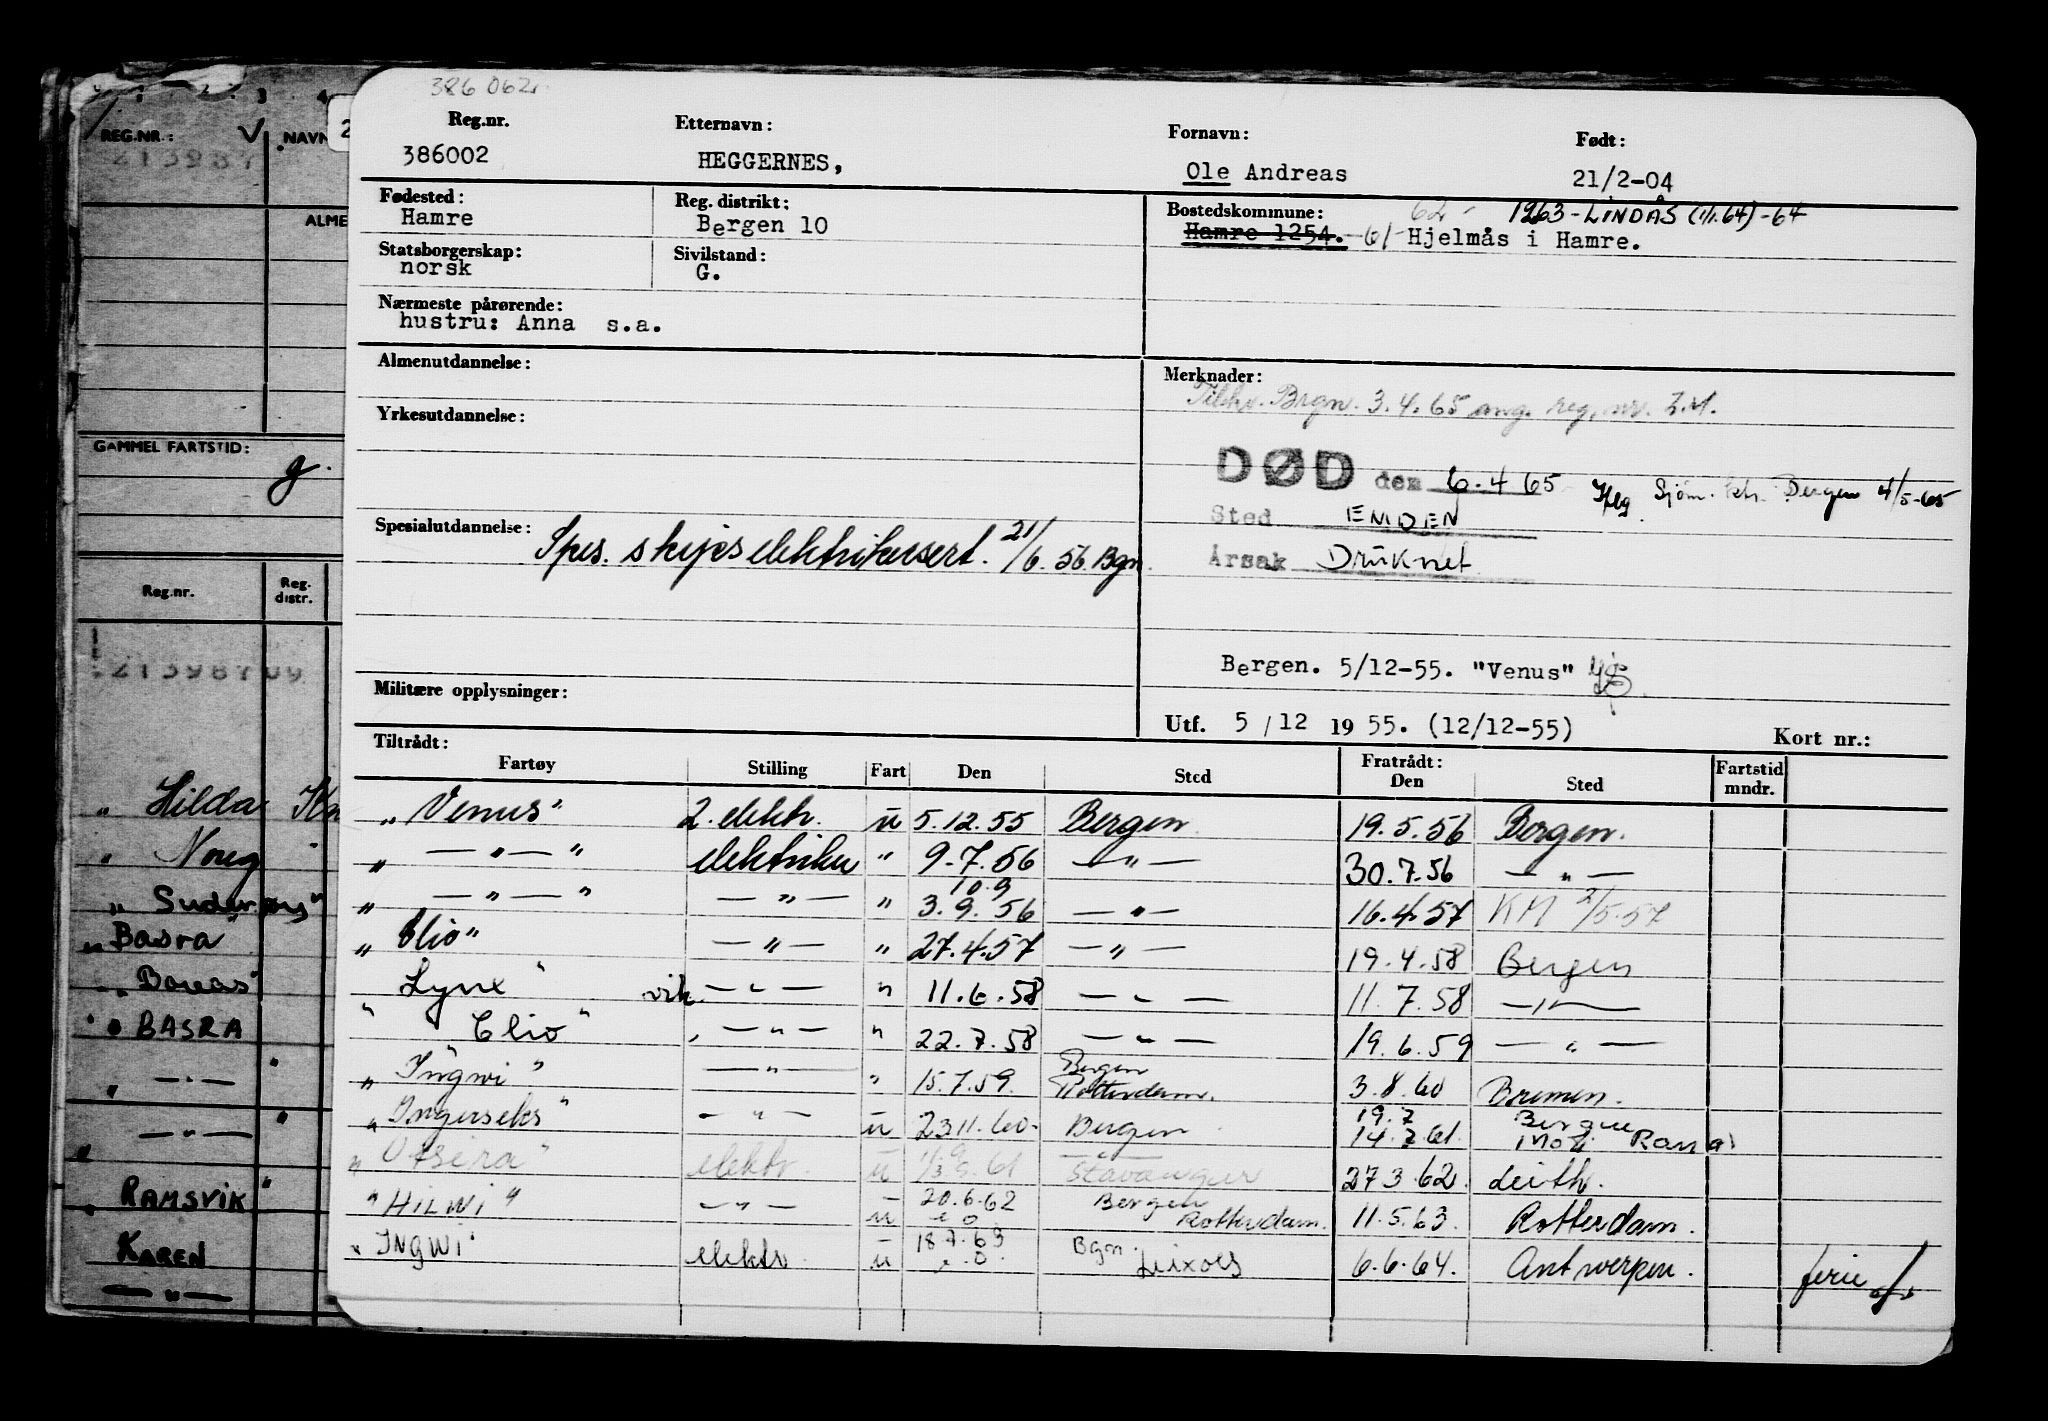 386 062
Reg.nr. Etternavn: Fornavn: Født:
386002 HEGGERNES, Ole Andreas 21/2-04
Fødested: Reg. distrikt: Bostedskommune: 62- 1263-LINDÅS (1/1.64)-64
Hamre Bergen 10 Hamre 1254. -61- Hjelmås i Hamre.
Statsborgerskap: Sivilstand:
norsk G.
Nærmeste pårørende:
hustru: Anna s.a.
Almenutdannelse: Merknader:
Brgn. 3.4.65 ang. reg. nr.
Yrkesutdannelse:
DØD den 6.4 65 Sjøm. Bergen 4/5-65
Sted EMDEN
Spesialutdannelse: Spes. skipselektrikersert. 21/6.56. Bgn.
Årsak Druknet
Bergen. 5/12-55. "Venus"
Militære opplysninger:
Utf. 5/12 1955. (12/12-55) Kort nr.:
Tiltrådt: Fratrådt: Fartstid
Fartøy Stilling Fart Den Sted Den Sted mndr.
"Venus" 2. elektr. u 5.12.55 Bergen 19.5.56 Bergen.
" — " — " elektriker " 9.7.56 — " — 30.7.56 — " —
10.9
" — " — " — " — " 3.9.56 — " — 16.4.57 KM 2/5.57
"Clio" — " — " 27.4.57 — " — 19.4.58 Bergen
"Lynx" vik. — " — " 11.6.58 — " — 11.7.58 — " —
"Clio" — " — " 22.7.58 — " — 19.6.59 — " —
Bergen
"Ingwi" — " — " 15.7.59. Rotterdam. 3.8.60 Bremen.
19.7 Bergen
"Ingerseks" — " — u 23 11.60- Bergen 14.7.61. Mo i Rana
"Utsira" elektr. u Stavanger 27 3.62. Leith.
20.6.62 Bergen
"HILWI" — " — u Rotterdam. 11.5.63. Rotterdam.
18.7.63 Bgn.
"INGWI" elektr. u Leixoes 6.6.64. Antwerpen. ferie
REG.NR.: NAVN
213987
ALME
GAMMEL FARTSTID:
g.
Reg.nr. Reg. distr.
21398709
" Hilda
" Noreg "
"
"Basra"
"
" BASRA
" — " — "
— " — "
RAMSVIK "
KAREN
— " —